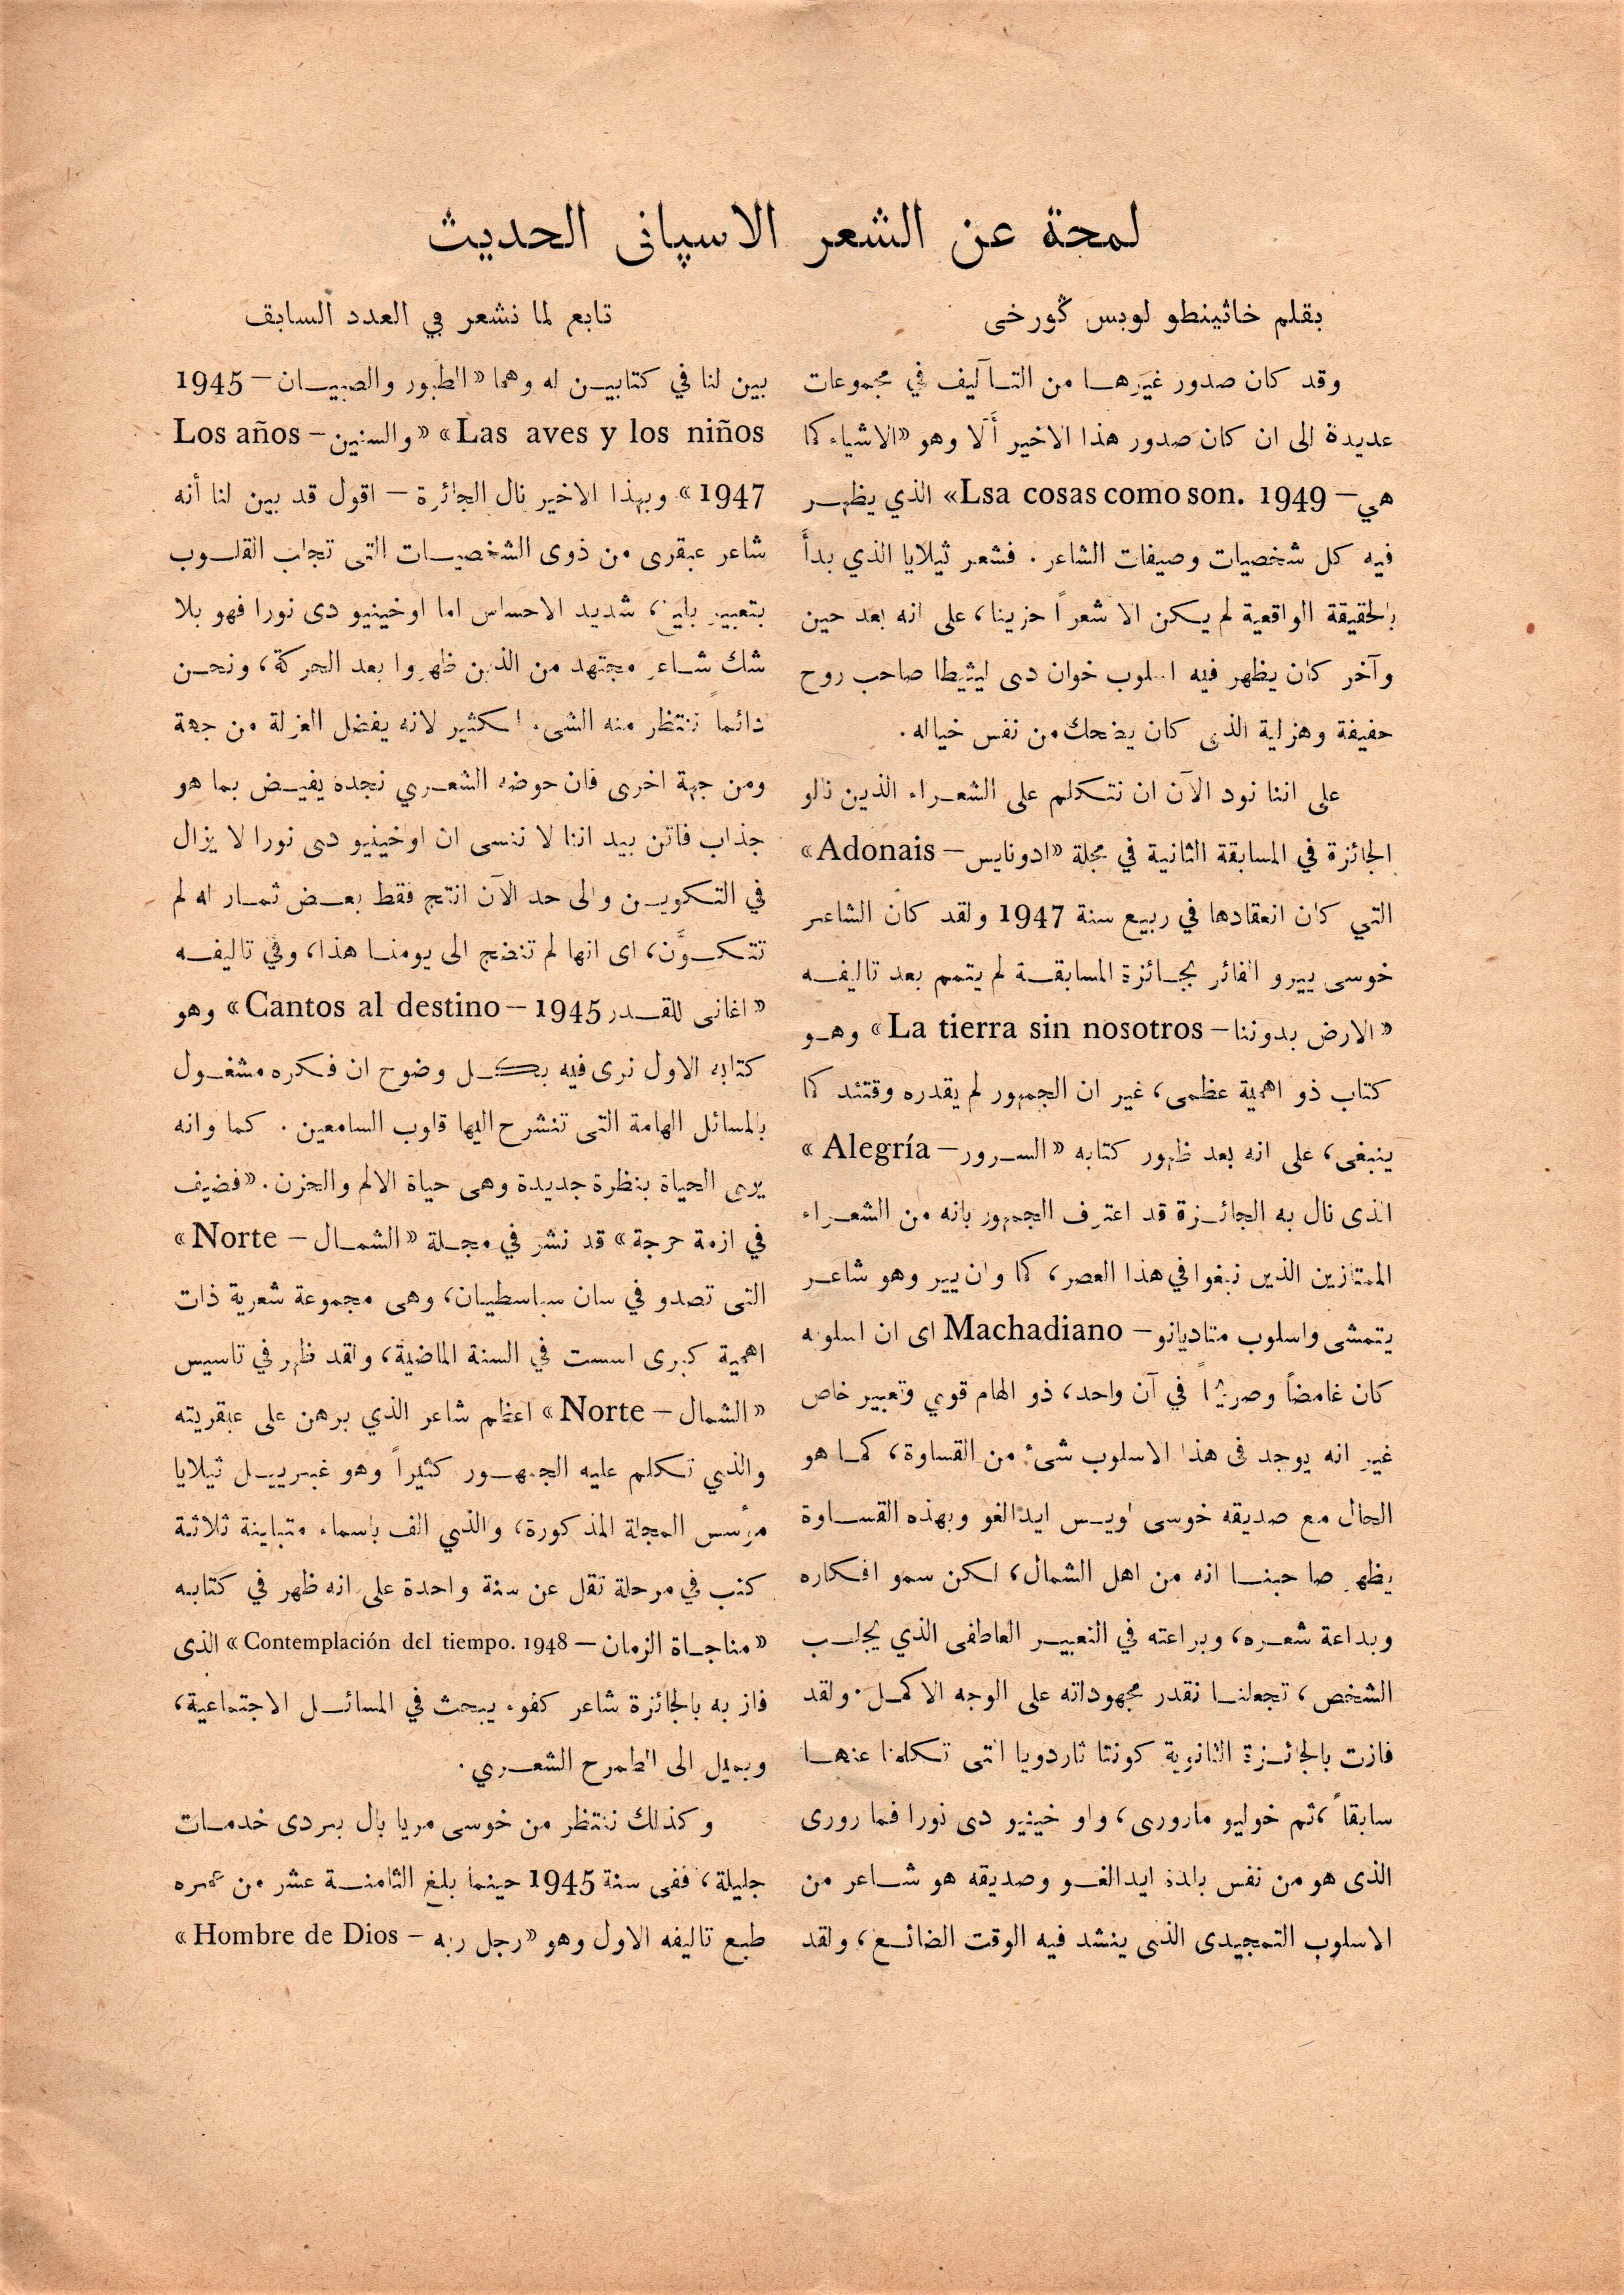 لمحة عن الشعر الاسپانى الحديث
بقلم خاثينطو لوبس ڭورخى
وقد كان صدور غيرهـا من التـآليف في مجموعات
عديدة الى ان كان صدور هذا الاخير أَلا وهو «الاشياء كما
هي – Lsa cosas como son. 1949» الذي يظهـر
فيه كل شخصيات وصيفات الشاعر. فشعر ثيلايا الذي بدأَ
بالحقيقة الواقعية لم يـكن الا شعراً حزينا، على انه بعد حين
وآخر كان يظهر فيه اسلوب خوان دى ليثيطا صاحب روح
خفيفة وهزلية الذي كان يضحك من نفس خياله.
على اننا نود الآن ان نتكلم على الشعـراء الذين نالو
الجائزة في المسابقة الثانية في مجلة «ادونايس – Adonais»
التي كان انعقادها في ربيع سنة 1947 ولقد كان الشاعر
خوسى ييرو الفائز بجـائزة المسابقـة لم يتمم بعد تاليفـه
«الارض بدوننا – La tierra sin nosotros» وهـو
كتاب ذو اهمية عظمى، غير ان الجمهور لم يقدره وقتئذ كما
ينبغى، على انه بعد ظهور كتابه «السـرور – Alegría»
الذى نال به الجائـزة قد اعترف الجمهور بانه من الشعـراء
الممتازين الذين نبغوا في هذا العصر، كما وان يير وهو شاعـر
يتمشى واسلوب متاديانو – Machadiano اى ان اسلوبه
كان غامضاً وصريحاً في آن واحد، ذو الهام قوي وتعبير خاص
غير انه يوجد فى هذا الاسلوب شئ من القساوة، كمـا هو
الحال مع صديقه خوسى لويـس ايدالغو وبهذه القسـاوة
يظهر صاحبنـا انه من اهل الشمال، لـكن سمو افـكاره
وبداعة شعـره، وبراعته في التعبيـر العاطفى الذي يجلـب
الشخص، تجعلنـا نقدر مجهوداته على الوجه الاكمـل. ولقد
فازت بالجائـزة الثانوية كونثا ثاردويا التى تـكلمنا عنهـا
سابقاً، ثم خوليو مارورى، واو خينيو دى نورا فما رورى
الذى هو من نفس بلدة ايدالغـو وصديقه هو شـاعر من
الاسلوب التمجيدى الذى ينشد فيه الوقت الضائـع، ولقد
تابع لما نشعر في العدد السابق
بين لنا في كتابيـن له وهما «الطيور والصبيـان – 1945
Las aves y los niños» «والسنين – Los años
1947» وبهذا الاخير نال الجائزة – اقول قد بين لنا أنه
شاعر عبقرى من ذوى الشخصيـات التى تجلب القلـوب
بتعبير بليغ، شديد الاحساس اما اوخينيو دى نورا فهو بلا
شك شـاعر مجتهد من الذين ظهروا بعد الحركة، ونحـن
دائما ننتظر منه الشىء الـكثير لانه يفضل العزلة من جهة
ومن جهة اخرى فان حوضه الشعـري نجده يفيـض بما هو
جذاب فاتن بيد اننا لا ننسى ان اوخينيو دى نورا لا يزال
في التـكويـن والى حد الآن انتج فقط بعـض ثمـار اه لم
تتكـوَّن، اى انها لم تنضج الى يومنـا هذا، وفي تاليفـه
«اغانى للقـدر 1945 – Cantos al destino» وهو
كتابه الاول نرى فيه بكـل وضوح ان فـكره مشغـول
بالمسائل الهامة التى تنشرح اليها قلوب السامعين. كما وانه
يرى الحياة بنظرة جديدة وهى حياة الالم والحزن. «فضيف
في ازمة حرجة» قد نشر في مجـلة «الشمـال – Norte»
التى تصدو في سان سباسطيـان، وهى مجموعة شعرية ذات
اهمية كبرى اسست في السنة الماضية، ولقد ظهر في تاسيس
«الشمال – Norte» اعظم شاعر الذي برهن على عبقريته
والذي تـكلم عليه الجمهـور كثيراً وهو غبرييـل ثيلايا
مؤسس المجلة المذكورة، والذي الف باسماء متباينة ثلاثة
كتب في مرحلة تقل عن سنة واحدة على انه ظهر في كتابـه
«مناجـاة الزمان – Contemplación del tiempo. 1948» الذى
فاز به بالجائزة شاعر كفوء يبحث في المسائـل الاجتماعية،
ويميل الى الطمرح الشعـري.
وكذلك ننتظر من خوسى مريا بال بردى خدمـات
جليلة، ففى سنة 1945 حينما بلغ الثامنـة عشر من عمره
طبع تاليفه الاول وهو «رجل ربه – Hombre de Dios»